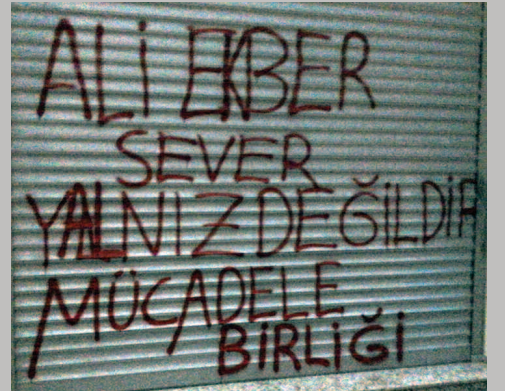 ALİ EKBER
SEVER
YALNIZ DEĞİLDİR
MÜCADELE
BİRLİĞİ